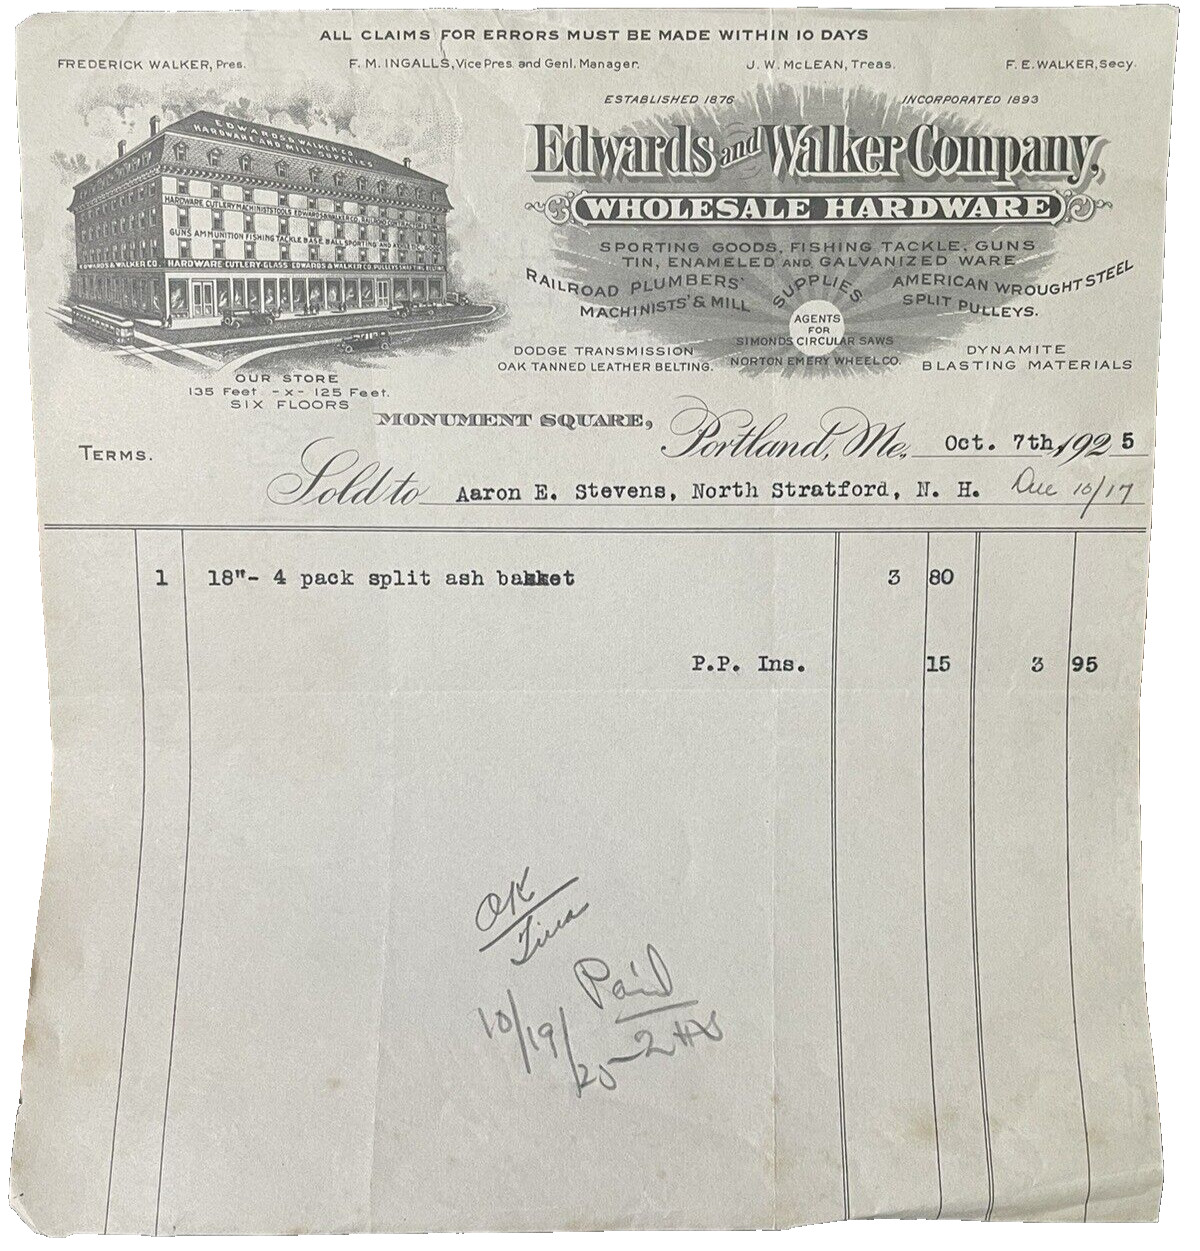 ALL CLAIMS FOR ERRORS MUST BE MADE WITHIN 10 DAYS
FREDERICK WALKER, Pres. F. M. INGALLS, Vice Pres. and Genl. Manager. J. W. McLEAN, Treas. F. E. WALKER, Secy.
ESTABLISHED 1876 INCORPORATED 1893
EDWARDS & WALKER CO.
HARDWARE AND MILL SUPPLIES
HARDWARE CUTLERY MACHINISTS TOOLS EDWARDS & WALKER CO.
GUNS AMMUNITION FISHING TACKLE BASE BALL SPORTING AND
EDWARDS & WALKER CO. HARDWARE CUTLERY-GLASS EDWARDS & WALKER CO. PULLEYS SHAFTING BELTING
Edwards and Walker Company,
WHOLESALE HARDWARE
SPORTING GOODS, FISHING TACKLE, GUNS
TIN, ENAMELED AND GALVANIZED WARE
RAILROAD PLUMBERS'
MACHINISTS' & MILL
SUPPLIES
AMERICAN WROUGHT STEEL
SPLIT PULLEYS.
AGENTS
FOR
SIMONDS CIRCULAR SAWS
NORTON EMERY WHEEL CO.
DODGE TRANSMISSION
OAK TANNED LEATHER BELTING.
DYNAMITE
BLASTING MATERIALS
OUR STORE
135 Feet -x- 125 Feet.
SIX FLOORS
MONUMENT SQUARE, Portland, Me., Oct. 7th, 1925
TERMS.
Sold to Aaron E. Stevens, North Stratford, N. H. Due 10/17
1 18"- 4 pack split ash basket 3 80
P.P. Ins. 15 3 95
OK
Paid
10/19/25